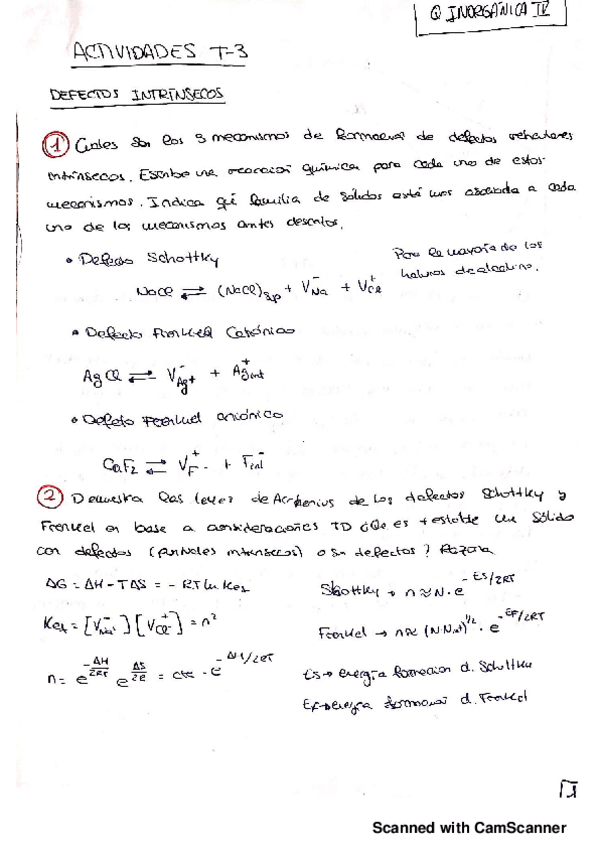 Q INORGÁNICA IV
ACTIVIDADES T-3
DEFECTOS INTRÍNSECOS
1 Cuales son los 3 mecanismos de formación de defectos reticulares
intrínsecos. Escribe una reacción química para cada uno de estos
mecanismos. Indica qué familia de sólidos está más asociada a cada
uno de los mecanismos antes descritos.
• Defecto Schottky
Para la mayoría de los
haluros de alcalino.
NaCl ⇌ (NaCl)sup + V⁻Na + V⁺Cl
• Defecto Frenkel Catiónico
AgCl ⇌ V⁻Ag+ + Ag⁺int
• Defeto Frenkel aniónico
CaF2 ⇌ V⁺F- + F⁻int
2 Demuestra las leyes de Arrhenius de los defectos Schottky y
Frenkel en base a consideraciones TD ¿Qué es + estable un sólido
con defectos (puntuales intrínsecos) o sin defectos? Razona
ΔG = ΔH - TΔS = - RT ln Keq
Keq = [V⁻Na] [V⁺Cl] = n²
n = e^-ΔH/2RT e^ΔS/2R = cte · e^-ΔH/2RT
Skottky → n ≈ N · e^-ES/2RT
Frenkel → n ≈ (N·Nint)^1/2 · e^-EF/2RT
Es → energía formación d. Schottky
EF → energía formación d. Frenkel
Scanned with CamScanner